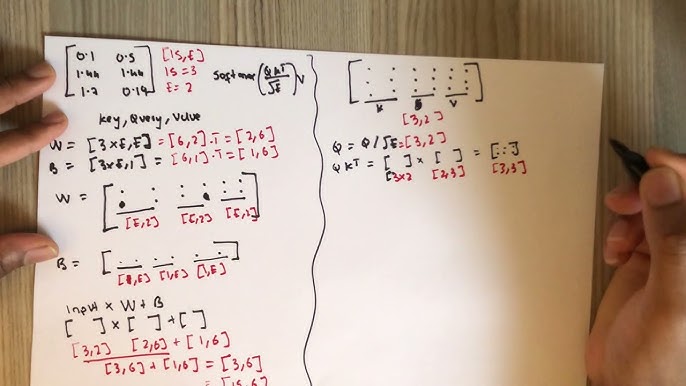 [0.1 0.5
1.44 1.44
1.2 0.19]
[1S,E]
1S = 3
E = 2
softmax(QKᵀ/√E)V
Key, Query, Value
W = [3×E,E] = [6,2].T = [2,6]
B = [3×E,1] = [6,1].T = [1,6]
W = [ ]
[E,2] [E,2] [E,2]
B = [ ]
[1,E] [1,E] [1,E]
Input × W + B
[ ] × [ ] + [ ]
[3,2] [2,6] + [1,6]
[3,6] + [1,6] = [3,6]
= [1S,6]
K Q V
[3,2]
Q = Q/√E = [3,2]
QKᵀ = [ ] × [ ] = [ ]
[3×2 [2,3] [3,3]